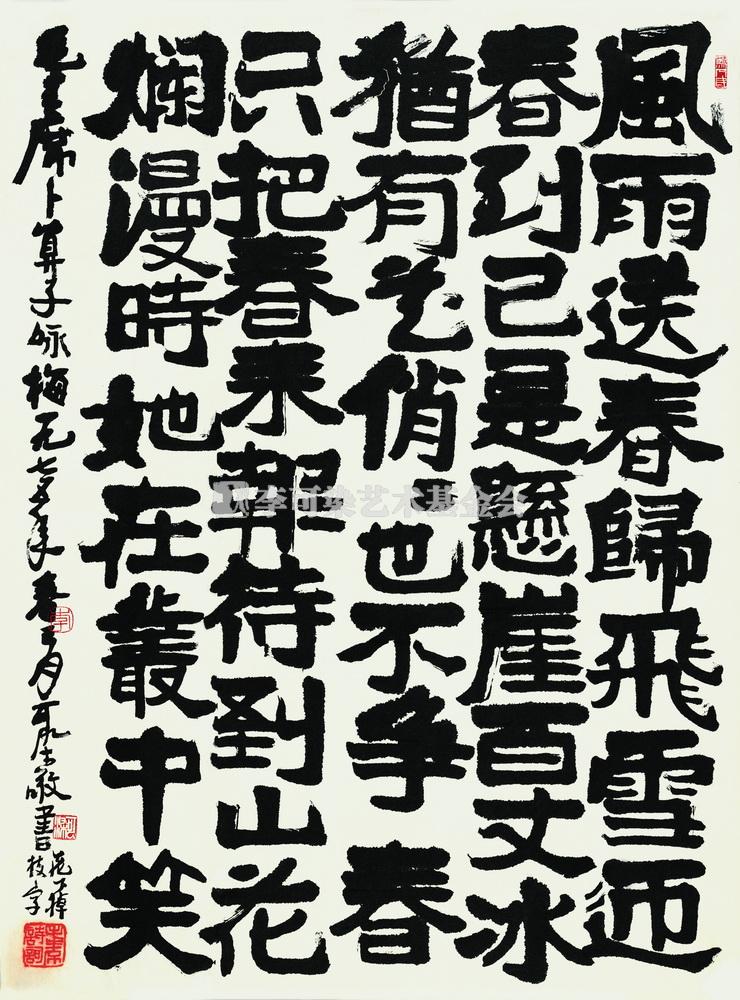 風雨送春歸飛雪迎
春到已是懸崖百丈冰
猶有花俏〻也不爭春
只把春来報待到山花
爛漫時她在叢中笑
毛主席卜算子咏梅一九七五年春三月可染敬書
花下掉
枝字
李
李可染艺术基金会